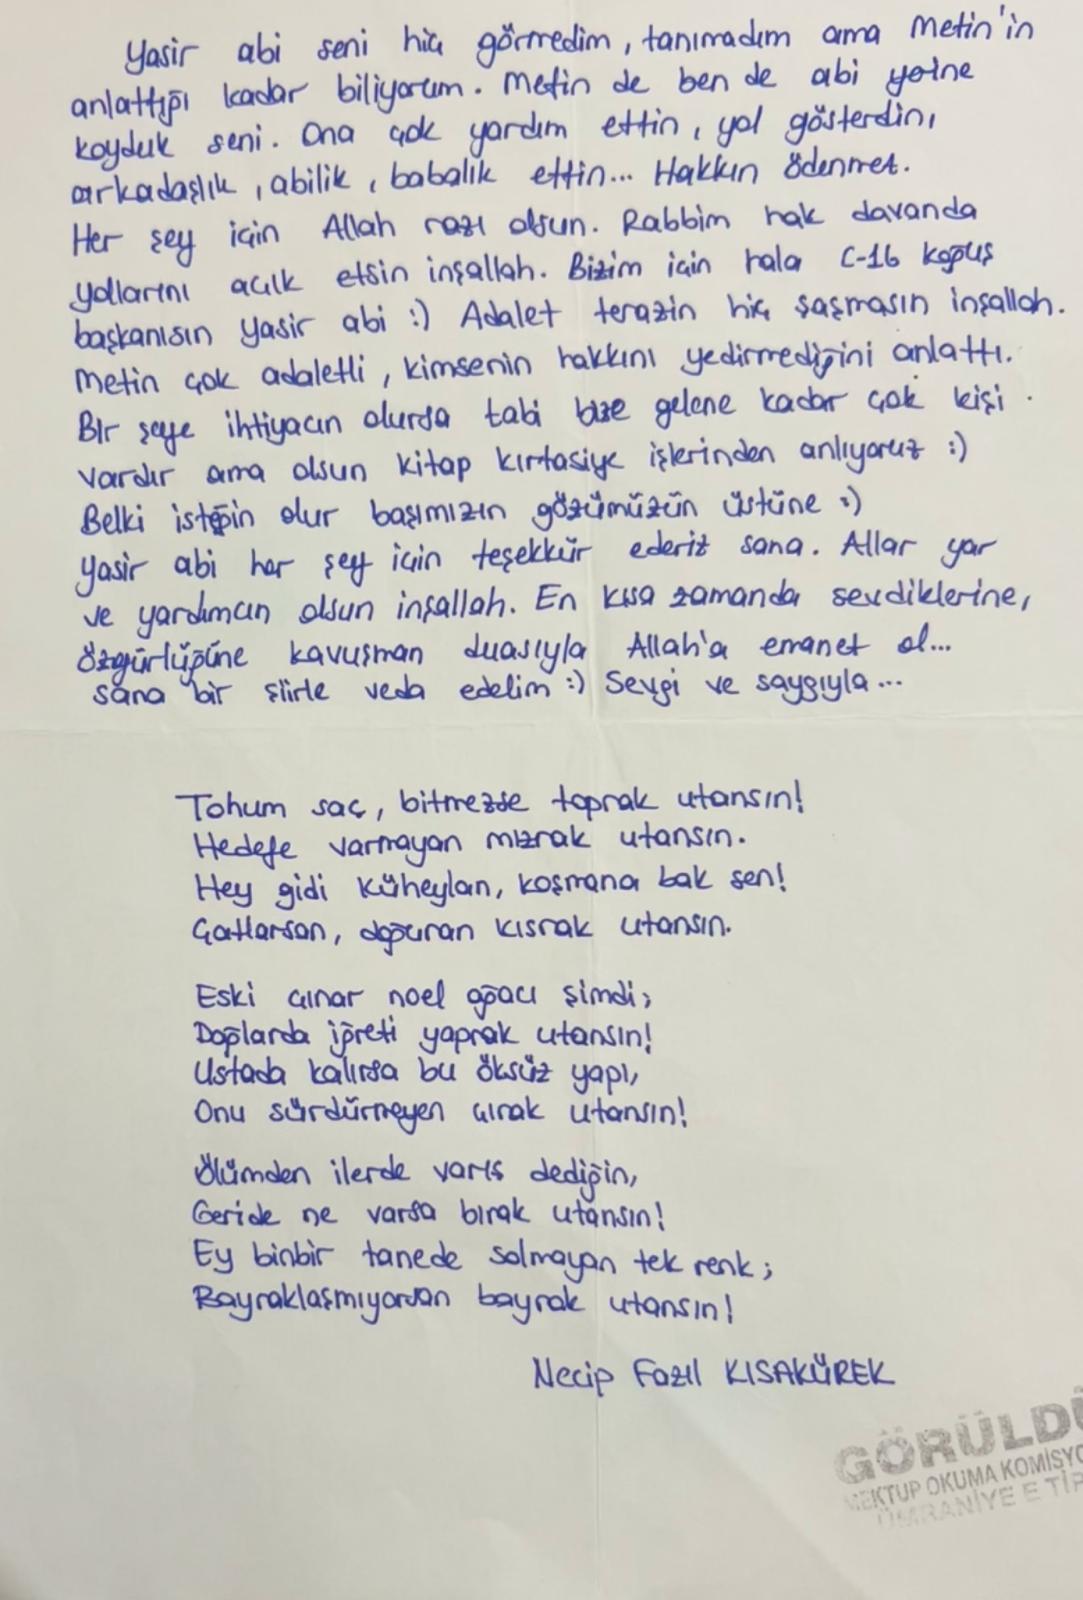 Yasir abi seni hiç görmedim, tanımadım ama Metin'in
anlattığı kadar biliyorum. Metin de ben de abi yerine
koyduk seni. Ona çok yardım ettin, yol gösterdin,
arkadaşlık, abilik, babalık ettin... Hakkın ödenmez.
Her şey için Allah razı olsun. Rabbim hak davanda
yollarını açık etsin inşallah. Bizim için hala C-16 koğuş
başkanısın Yasir abi :) Adalet terazin hiç şaşmasın inşallah.
Metin çok adaletli, kimsenin hakkını yedirmediğini anlattı.
Bir şeye ihtiyacın olursa tabi bize gelene kadar çok kişi
vardır ama olsun kitap kırtasiye işlerinden anlıyoruz :)
Belki isteğin olur başımızın gözümüzün üstüne :)
Yasir abi her şey için teşekkür ederiz sana. Allah yar
ve yardımcın olsun inşallah. En kısa zamanda sevdiklerine,
özgürlüğüne kavuşman duasıyla Allah'a emanet ol...
sana bir şiirle veda edelim :) Sevgi ve saygıyla...
Tohum saç, bitmezse toprak utansın!
Hedefe varmayan mızrak utansın.
Hey gidi Küheylan, koşmana bak sen!
Çatlarsan, doğuran kısrak utansın.
Eski çınar noel ağacı şimdi;
Dağlarda iğreti yaprak utansın!
Ustada kalırsa bu öksüz yapı,
Onu sürdürmeyen çırak utansın!
Ölümden ilerde varış dediğin,
Geride ne varsa bırak utansın!
Ey binbir tanede solmayan tek renk;
Bayraklaşmıyorsan bayrak utansın!
Necip Fazıl KISAKÜREK
GÖRÜLDÜ
MEKTUP OKUMA KOMİSYO
ÜMRANİYE E TİP